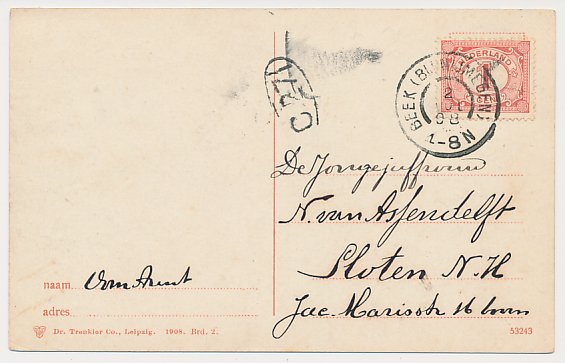 NEDERLAND
BEEK (BIJ NIJMEGEN)
2
08
1-8N
De Jongejuffrouw
N. van Assendelft
Sloten N.H
Jac. Marisstr 16 boven
naam Oom Arent
adres
Dr. Trenkler Co., Leipzig. 1908. Brd. 2.
53243